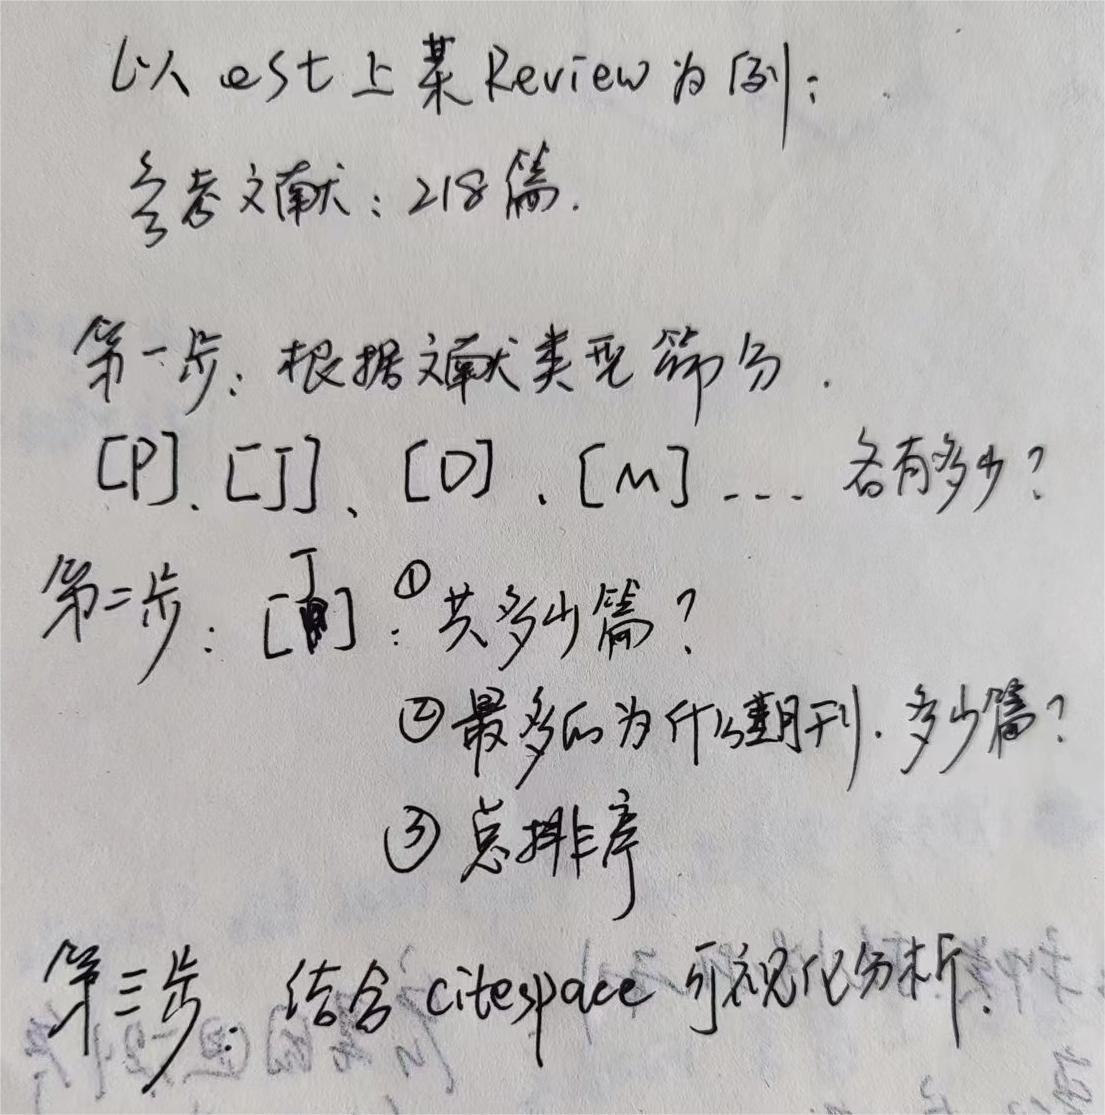 以 est 上某 Review 为例:
参考文献:218篇.
第一步:根据文献类型筛分.
[P]、[J]、[D]、[M]....各有多少?
第二步:[J]:①共多少篇?
②最多的为什么期刊.多少篇?
③总排序
第三步:结合 citespace 可视化分析.